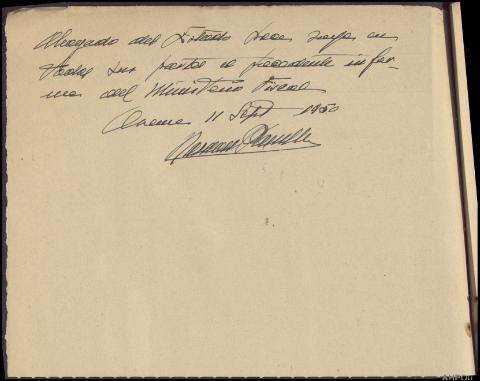 Abogado del Estado hace suyo en
todas sus partes el precedente infor-
me del Ministerio Fiscal
Cuenca 11 Sept 1950